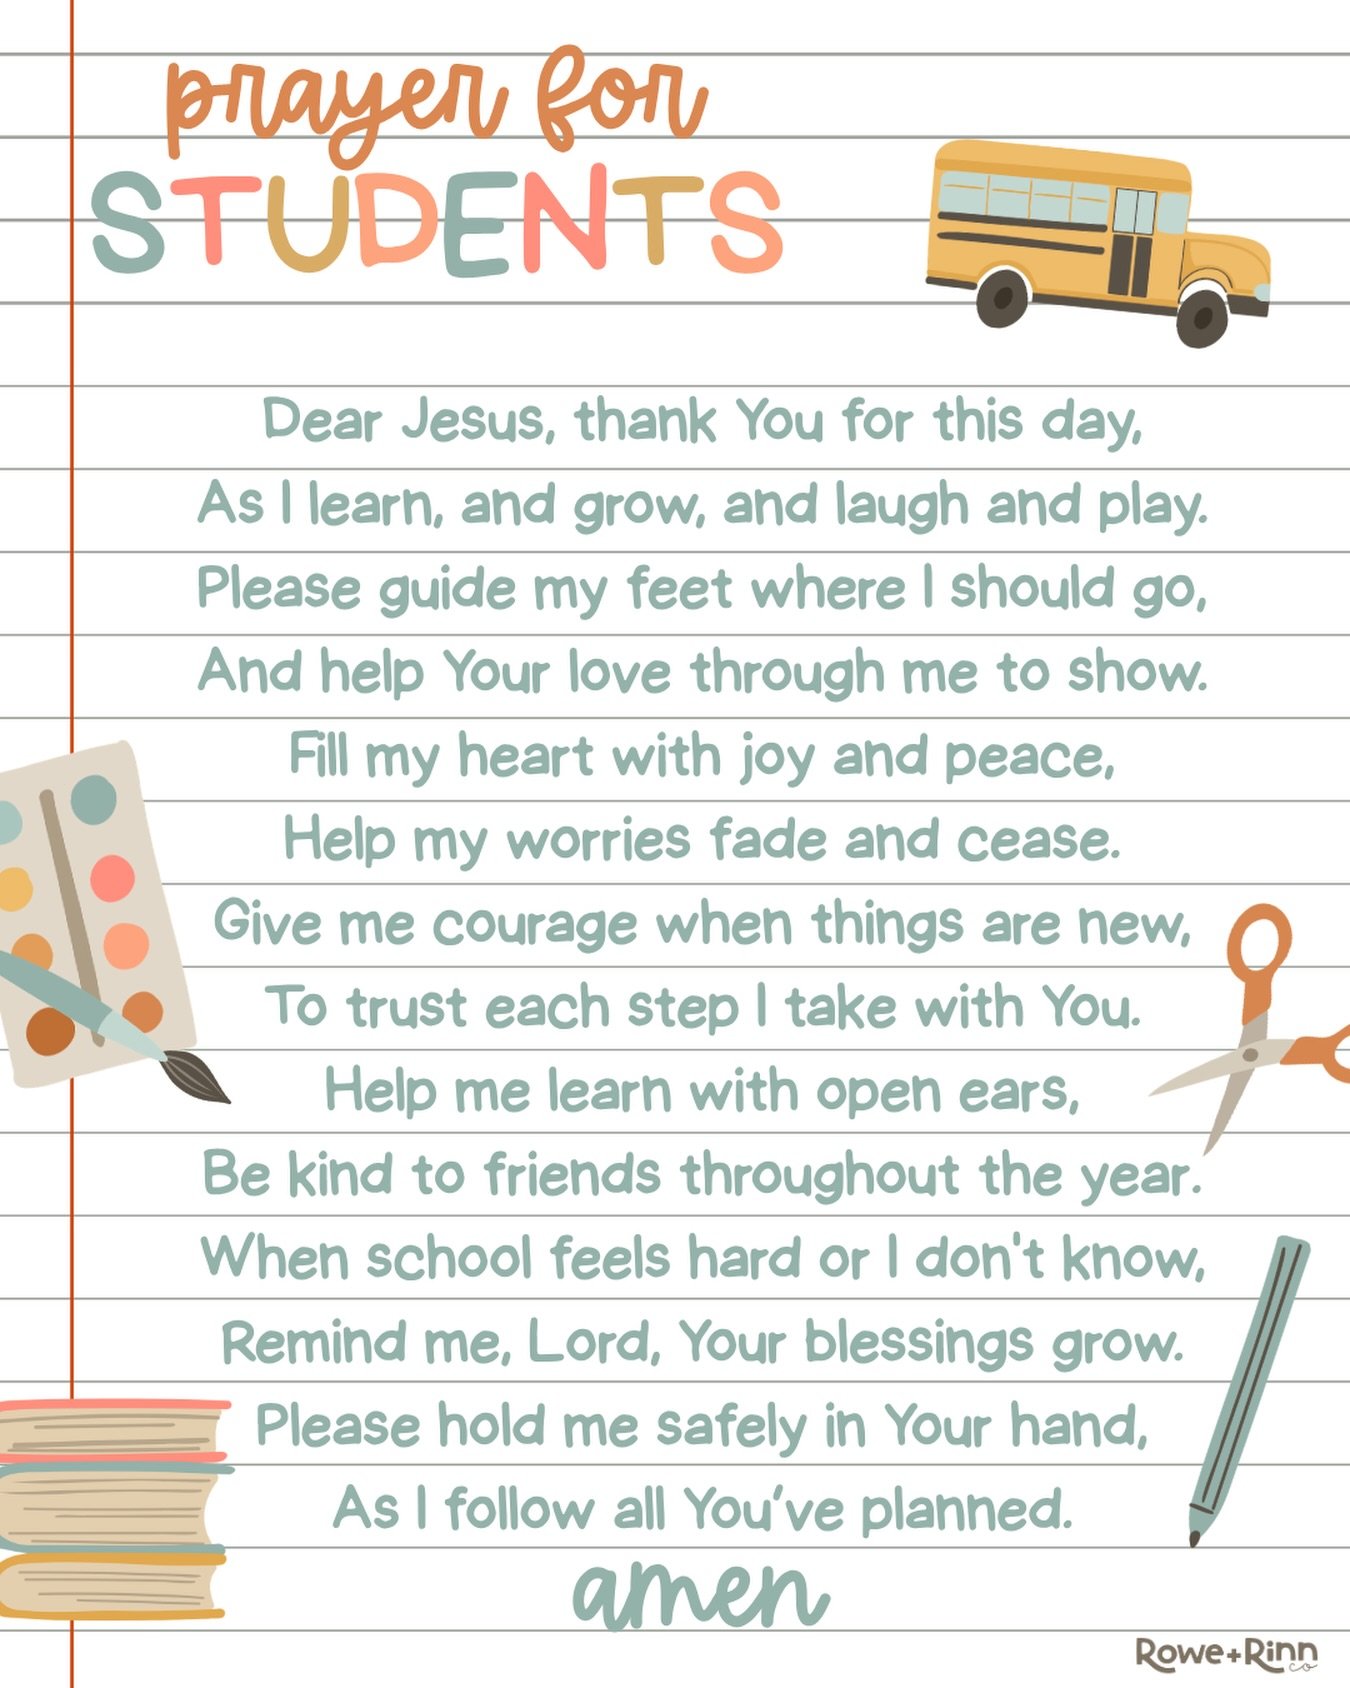 prayer for
STUDENTS
Dear Jesus, thank You for this day,
As I learn, and grow, and laugh and play.
Please guide my feet where I should go,
And help Your love through me to show.
Fill my heart with joy and peace,
Help my worries fade and cease.
Give me courage when things are new,
To trust each step I take with You.
Help me learn with open ears,
Be kind to friends throughout the year.
When school feels hard or I don't know,
Remind me, Lord, Your blessings grow.
Please hold me safely in Your hand,
As I follow all You've planned.
amen
Rowe+Rinn co